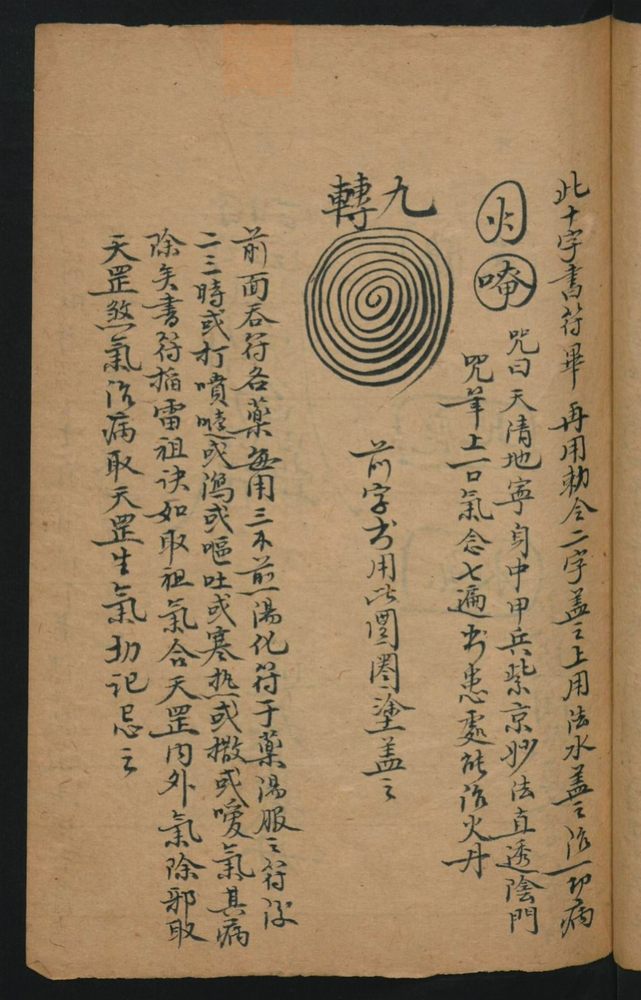 此十字書符畢 再用勅令二字蓋之上用法水蓋之治一切病
火 唵 咒曰天清地寧身中甲兵紫京妙法直透陰門
咒筆上一口氣念七遍书患處能治火丹
九轉
前字书用此圈圈塗蓋之
前面吞符各藥每用三不煎湯化符于藥湯服之符後
二三時或打噴嚏或瀉或嘔吐或寒热或撒或噯氣其病
除矣書符掐雷祖诀如取祖氣合天罡内外氣除邪取
天罡煞氣治病取天罡生氣切記忌之